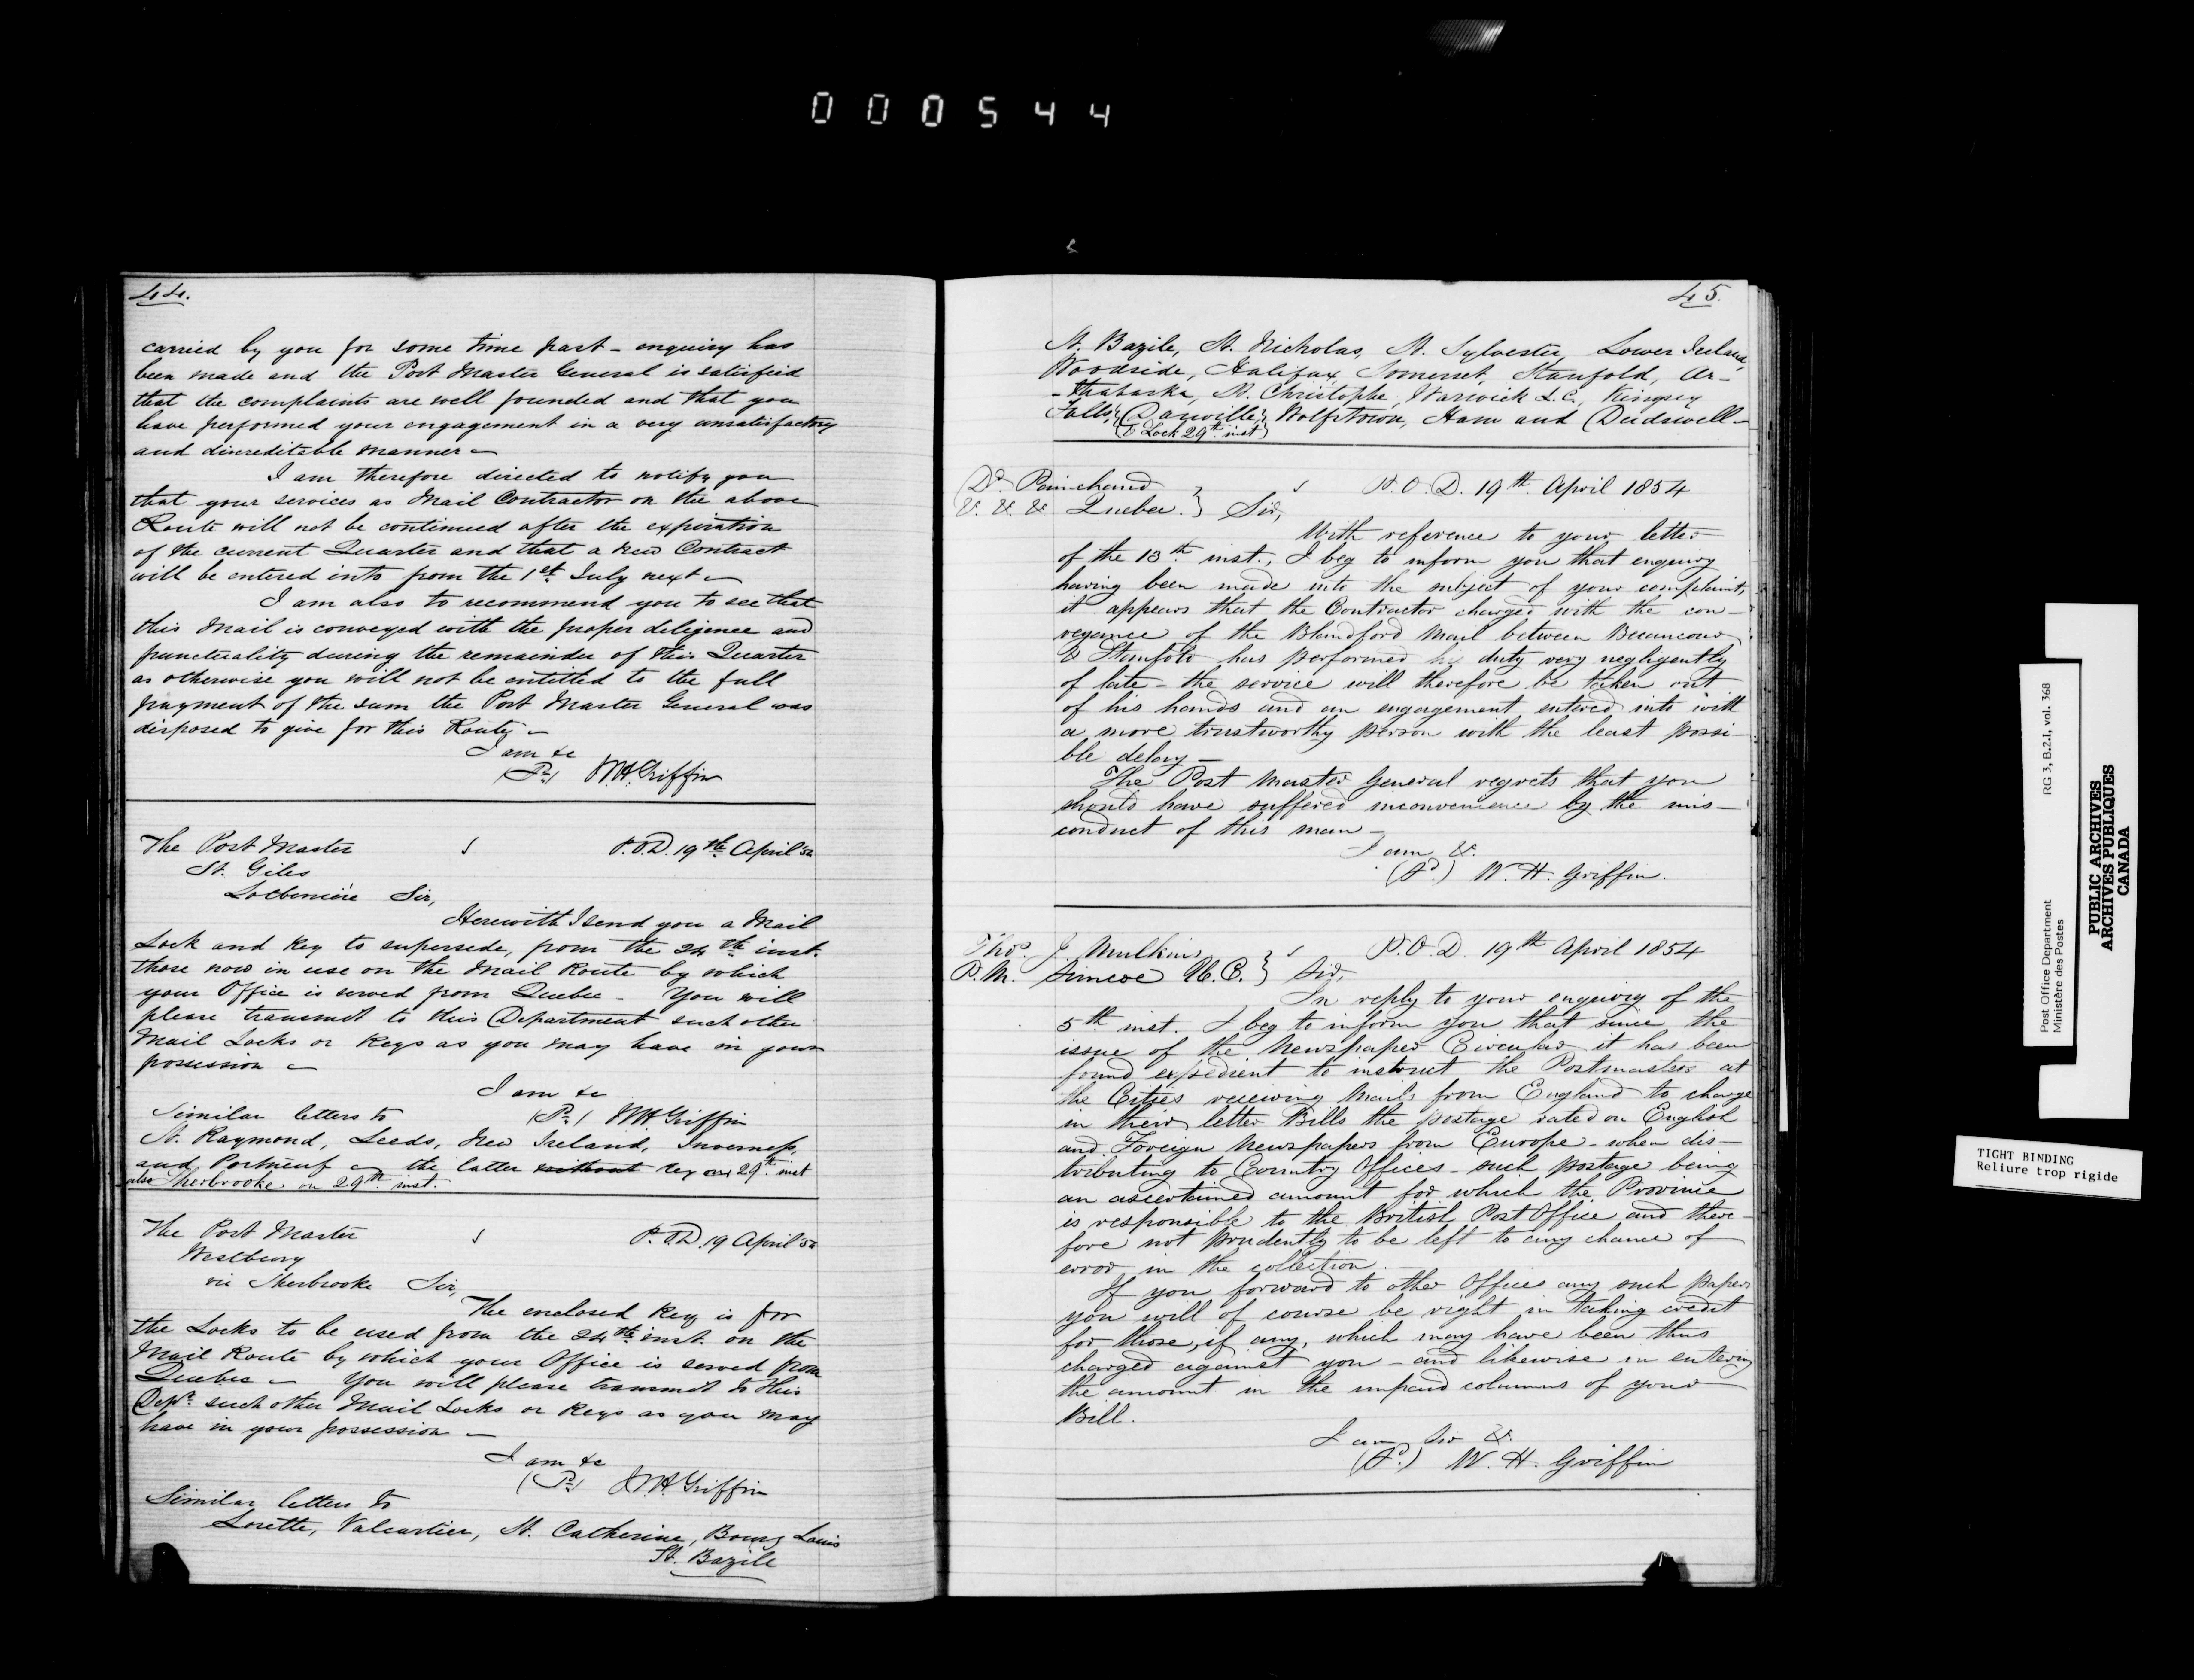 000544
44.
carried by you for some time past - enquiry has
been made and the Post Master General is satisfeid
that the complaints are well founded and that you
have performed your engagement in a very unsatisfactory
and discreditable manner -
I am therefore directed to notify you
that your services as Mail Contractor on the above
Route will not be continued after the expiration
of the current Quarter and that a new Contract
will be entered into from the 1st July next -
I am also to recommend you to see that
this Mail is conveyed with the proper diligence and
punctuality during the remainder of this Quarter
as otherwise you will not be entitled to the full
payment of the sum the Post Master General was
disposed to give for this Route -
I am &c
W.H. Griffin
The Post Master
P.O.D. 19th April 54
St. Giles
Lotbiniére Sir,
Herewith I send you a Mail
Lock and Key to supersede, from the 24th inst.
those now in use on the Mail Route by which
your Office is served from Quebec - You will
please transmit to this Department such other
Mail Locks or Keys as you may have in your
possession -
I am &c
W.H. Griffin
Similar letters to
St. Raymond, Leeds, New Ireland, Inverness,
and Portneuf - the latter without key on 29th inst
also Sherbrooke on 29th inst.
The Post Master
P.O.D. 19 April 54
Westbury
via Sherbrooke Sir,
The enclosed Key is for
the Locks to be used from the 24th inst. on the
Mail Route by which your Office is served from
Quebec - You will please transmit to this
Dept. such other Mail Locks or Keys as you may
have in your possession -
I am &c
W.H. Griffin
Similar letters to
Lorette, Valcartier, St. Catherine, Bourg Louis
St. Bazile
45.
St. Bazile, St. Nicholas, St. Sylvester, Lower Ireland,
Woodside, Halifax, Somerset, Stanfold, Ar-
-thabaska, St. Christophe, Warwick L.C., Kingsey
Falls, Danville, Wolfstown, Ham and Dudswell -
(& Lock 29th inst)
Dr. Painchaud
P.O.D. 19th April 1854
&. &. & Quebec. } Sir,
With reference to your letter
of the 13th inst., I beg to inform you that enquiry
having been made into the subject of your complaint,
it appears that the Contractor charged with the con-
veyance of the Blandford Mail between Becancour
& Stanfold has performed his duty very negligently
of late - the service will therefore be taken out
of his hands and an engagement entered into with
a more trustworthy person with the least possi-
ble delay -
The Post Master General regrets that you
should have suffered inconvenience by the mis-
conduct of this man -
I am &.
W. H. Griffin.
Thos. J. Mulkins
P.O.D. 19th April 1854
P.M. Simcoe U.C. } Sir,
In reply to your enquiry of the
5th inst. I beg to inform you that since the
issue of the Newspaper Circular it has been
found expedient to instruct the Postmasters at
the Cities receiving Mails from England to charge
in their letter Bills the postage rated on English
and Foreign Newspapers from Europe - when dis-
tributing to Country Offices - such postage being
an ascertained amount for which the Province
is responsible to the British Post Office and there-
fore not prudently to be left to any chance of
error in the collection.
If you forward to other Offices any such papers
you will of course be right in taking credit
for those, if any, which may have been thus
charged against you - and likewise in entering
the amount in the unpaid columns of your
Bill.
I am Sir &.
W. H. Griffin
Post Office Department
Ministère des Postes
RG 3, B.2.I, vol. 368
PUBLIC ARCHIVES
ARCHIVES PUBLIQUES
CANADA
TIGHT BINDING
Reliure trop rigide